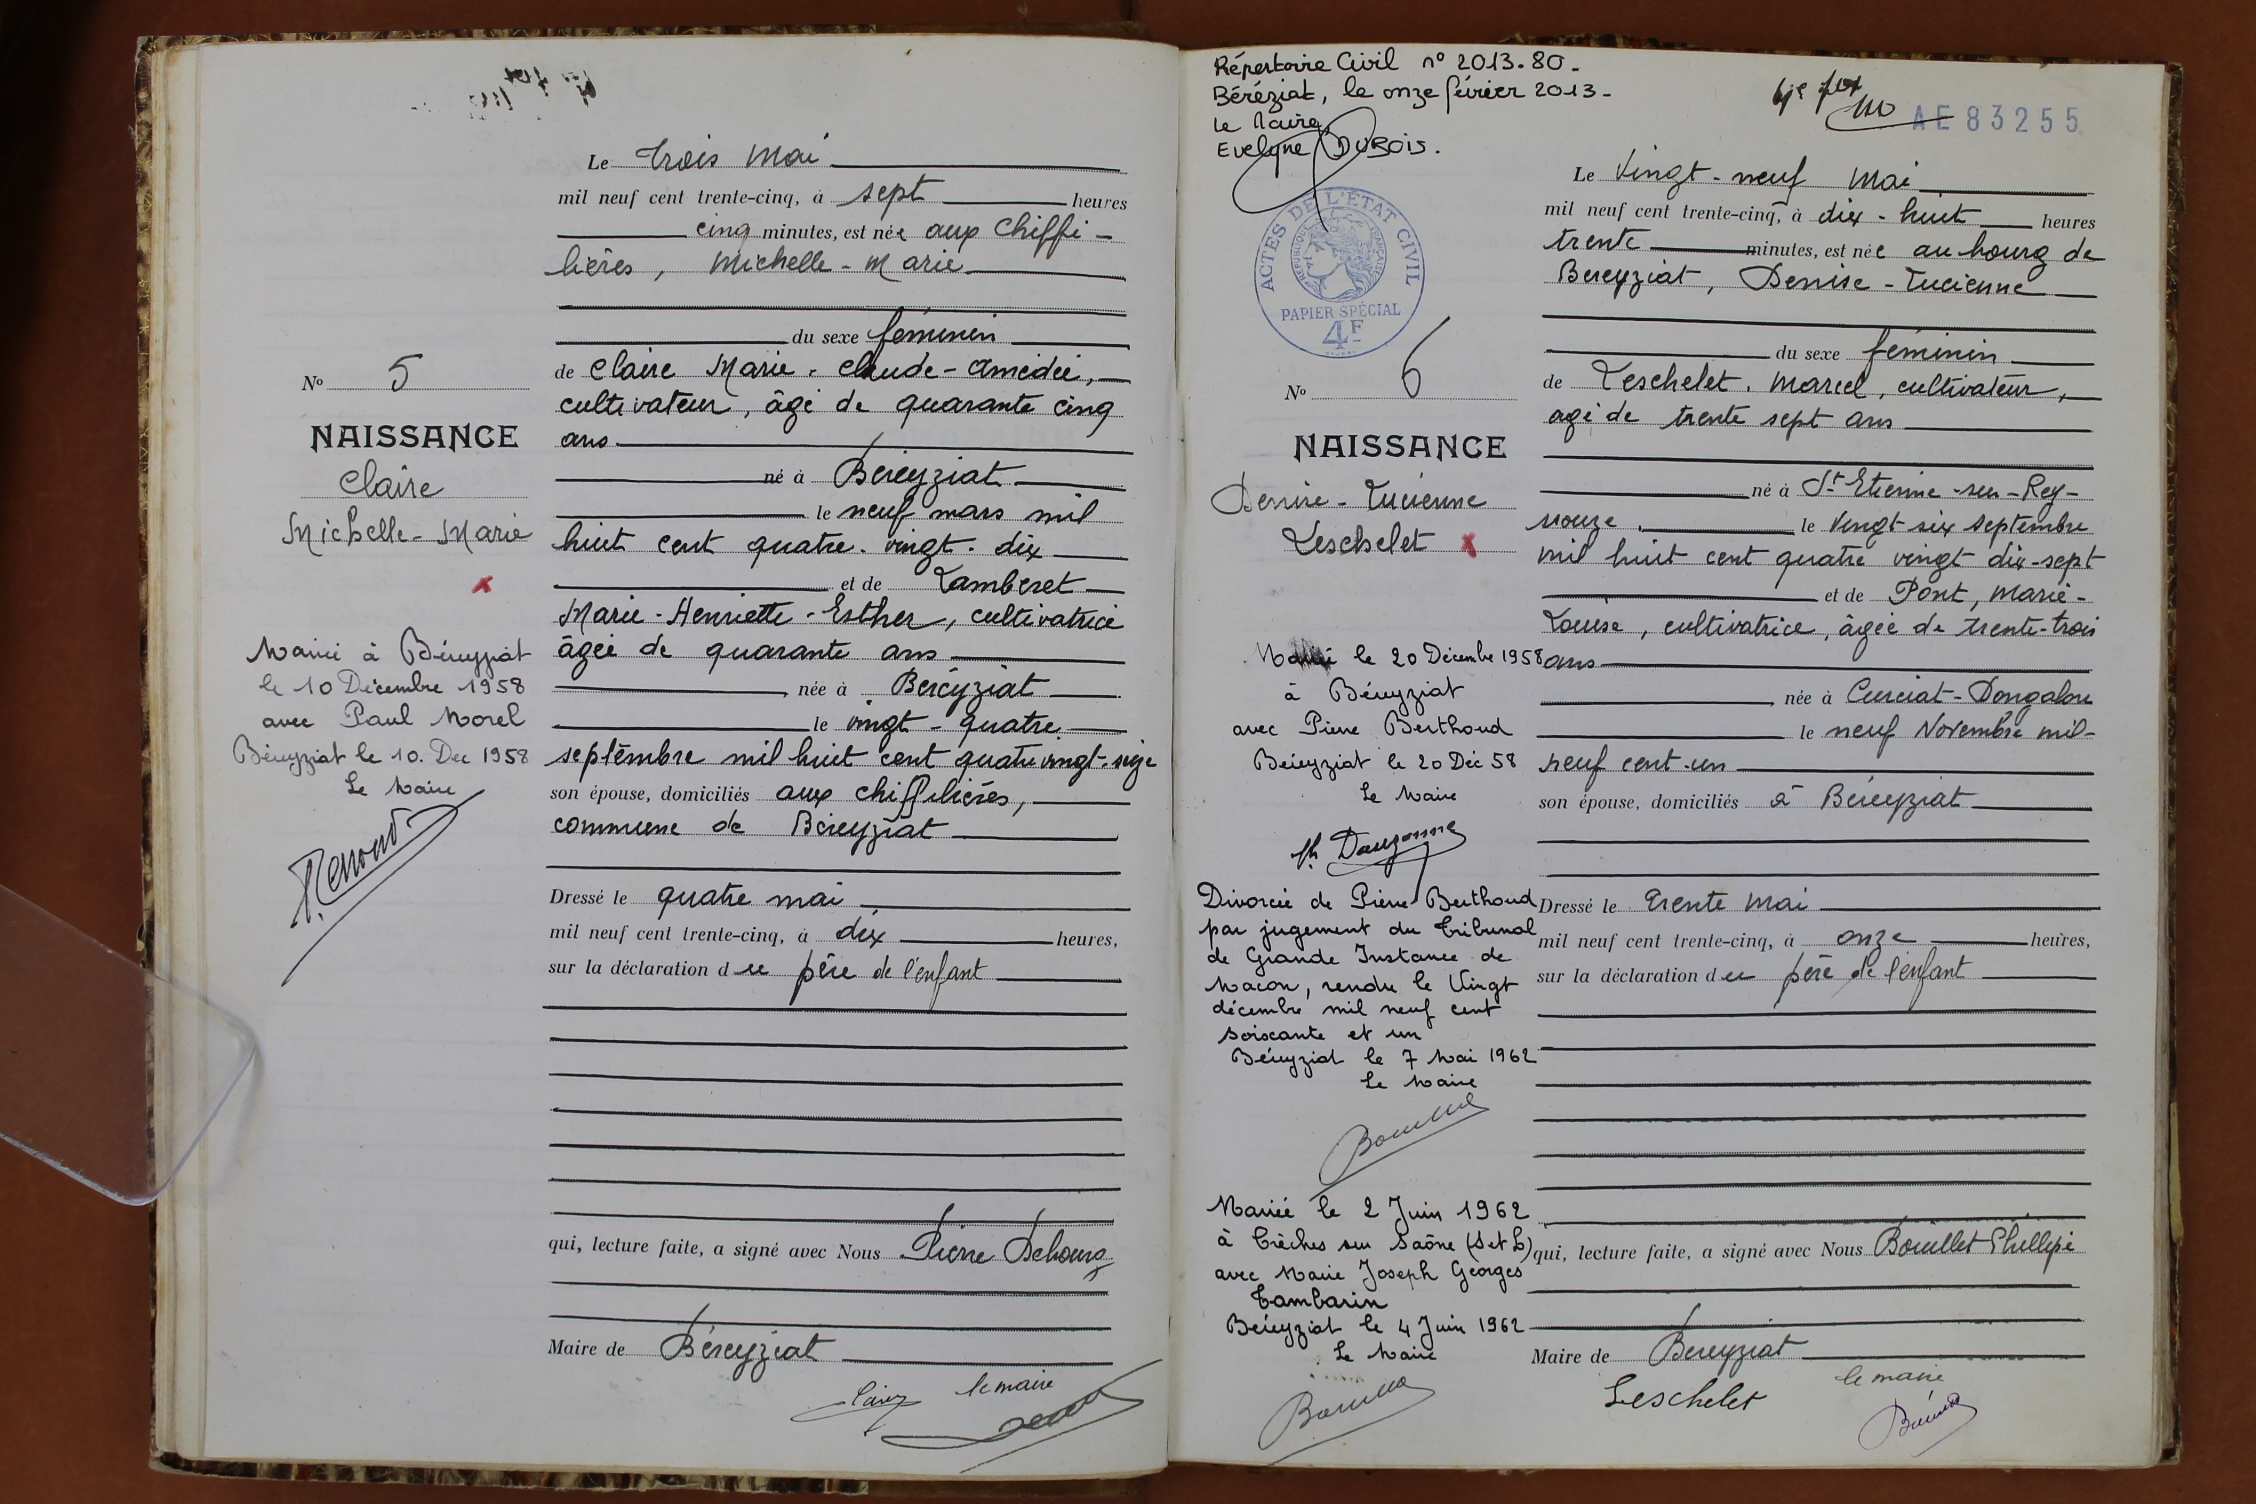 Le trois mai
mil neuf cent trente-cinq, à sept heures
cinq minutes, est née aux Chiffi-
lières, Michelle-Marie
du sexe féminin
de Claire Marie-Claude-Amédée,
cultivateur, âgé de quarante cinq
ans
né à Béreyziat
le neuf mars mil
huit cent quatre-vingt-dix
et de Lamberet
Marie-Henriette-Esther, cultivatrice
âgée de quarante ans
née à Béreyziat
le vingt-quatre
septembre mil huit cent quatre vingt-
son épouse, domiciliés aux chiffilières,
commune de Béreyziat
Dressé le quatre mai
mil neuf cent trente-cinq, à dix heures,
sur la déclaration du père de l'enfant
qui, lecture faite, a signé avec Nous Pierre
Maire de Béreyziat
le maire
No 5
NAISSANCE
Claire
Michelle-Marie
x
Mariée à Béreyziat
le 10 Décembre 1958
avec Paul Morel
Béreyziat le 10. Dec 1958
Le Maire
Répertoire Civil n° 2013-80.
Béréziat, le onze février 2013-
Le Maire
Evelyne DUBOIS.
AE 83255
ACTES DE L'ÉTAT CIVIL
RÉPUBLIQUE FRANÇAISE
PAPIER SPÉCIAL
4F
No 6
NAISSANCE
Denise-Lucienne
Leschelet x
Mariée le 20 Décembre 1958
à Béreyziat
avec Pierre Berthoud
Béreyziat le 20 Déc 58
Le Maire
Divorcée de Pierre Berthoud
par jugement du Tribunal
de Grande Instance de
Macon, rendu le Vingt
décembre mil neuf cent
soixante et un
Béreyziat le 7 Mai 1962
Le Maire
Mariée le 2 Juin 1962
à Crèches sur Saône (S et L)
avec Marie Joseph Georges
Tambarin
Béreyziat le 4 Juin 1962
Le Maire
Le Vingt-neuf Mai
mil neuf cent trente-cinq, à dix-huit heures
trente minutes, est née au bourg de
Bereyziat, Denise-Lucienne
du sexe féminin
de Leschelet. Marcel, cultivateur,
agé de trente sept ans
né à St Etienne-sur-Rey-
souze. le vingt-six septembre
mil huit cent quatre vingt dix-sept
et de Pont, Marie-
Louise, cultivatrice, âgée de trente-trois
ans
née à Curciat-Dongalon
le neuf Novembre mil-
neuf cent-un
son épouse, domiciliés à Béreyziat
Dressé le trente mai
mil neuf cent trente-cinq, à onze heures,
sur la déclaration du père de l'enfant
qui, lecture faite, a signé avec Nous Bouillet Philippe
Maire de Bereyziat
Leschelet
le maire